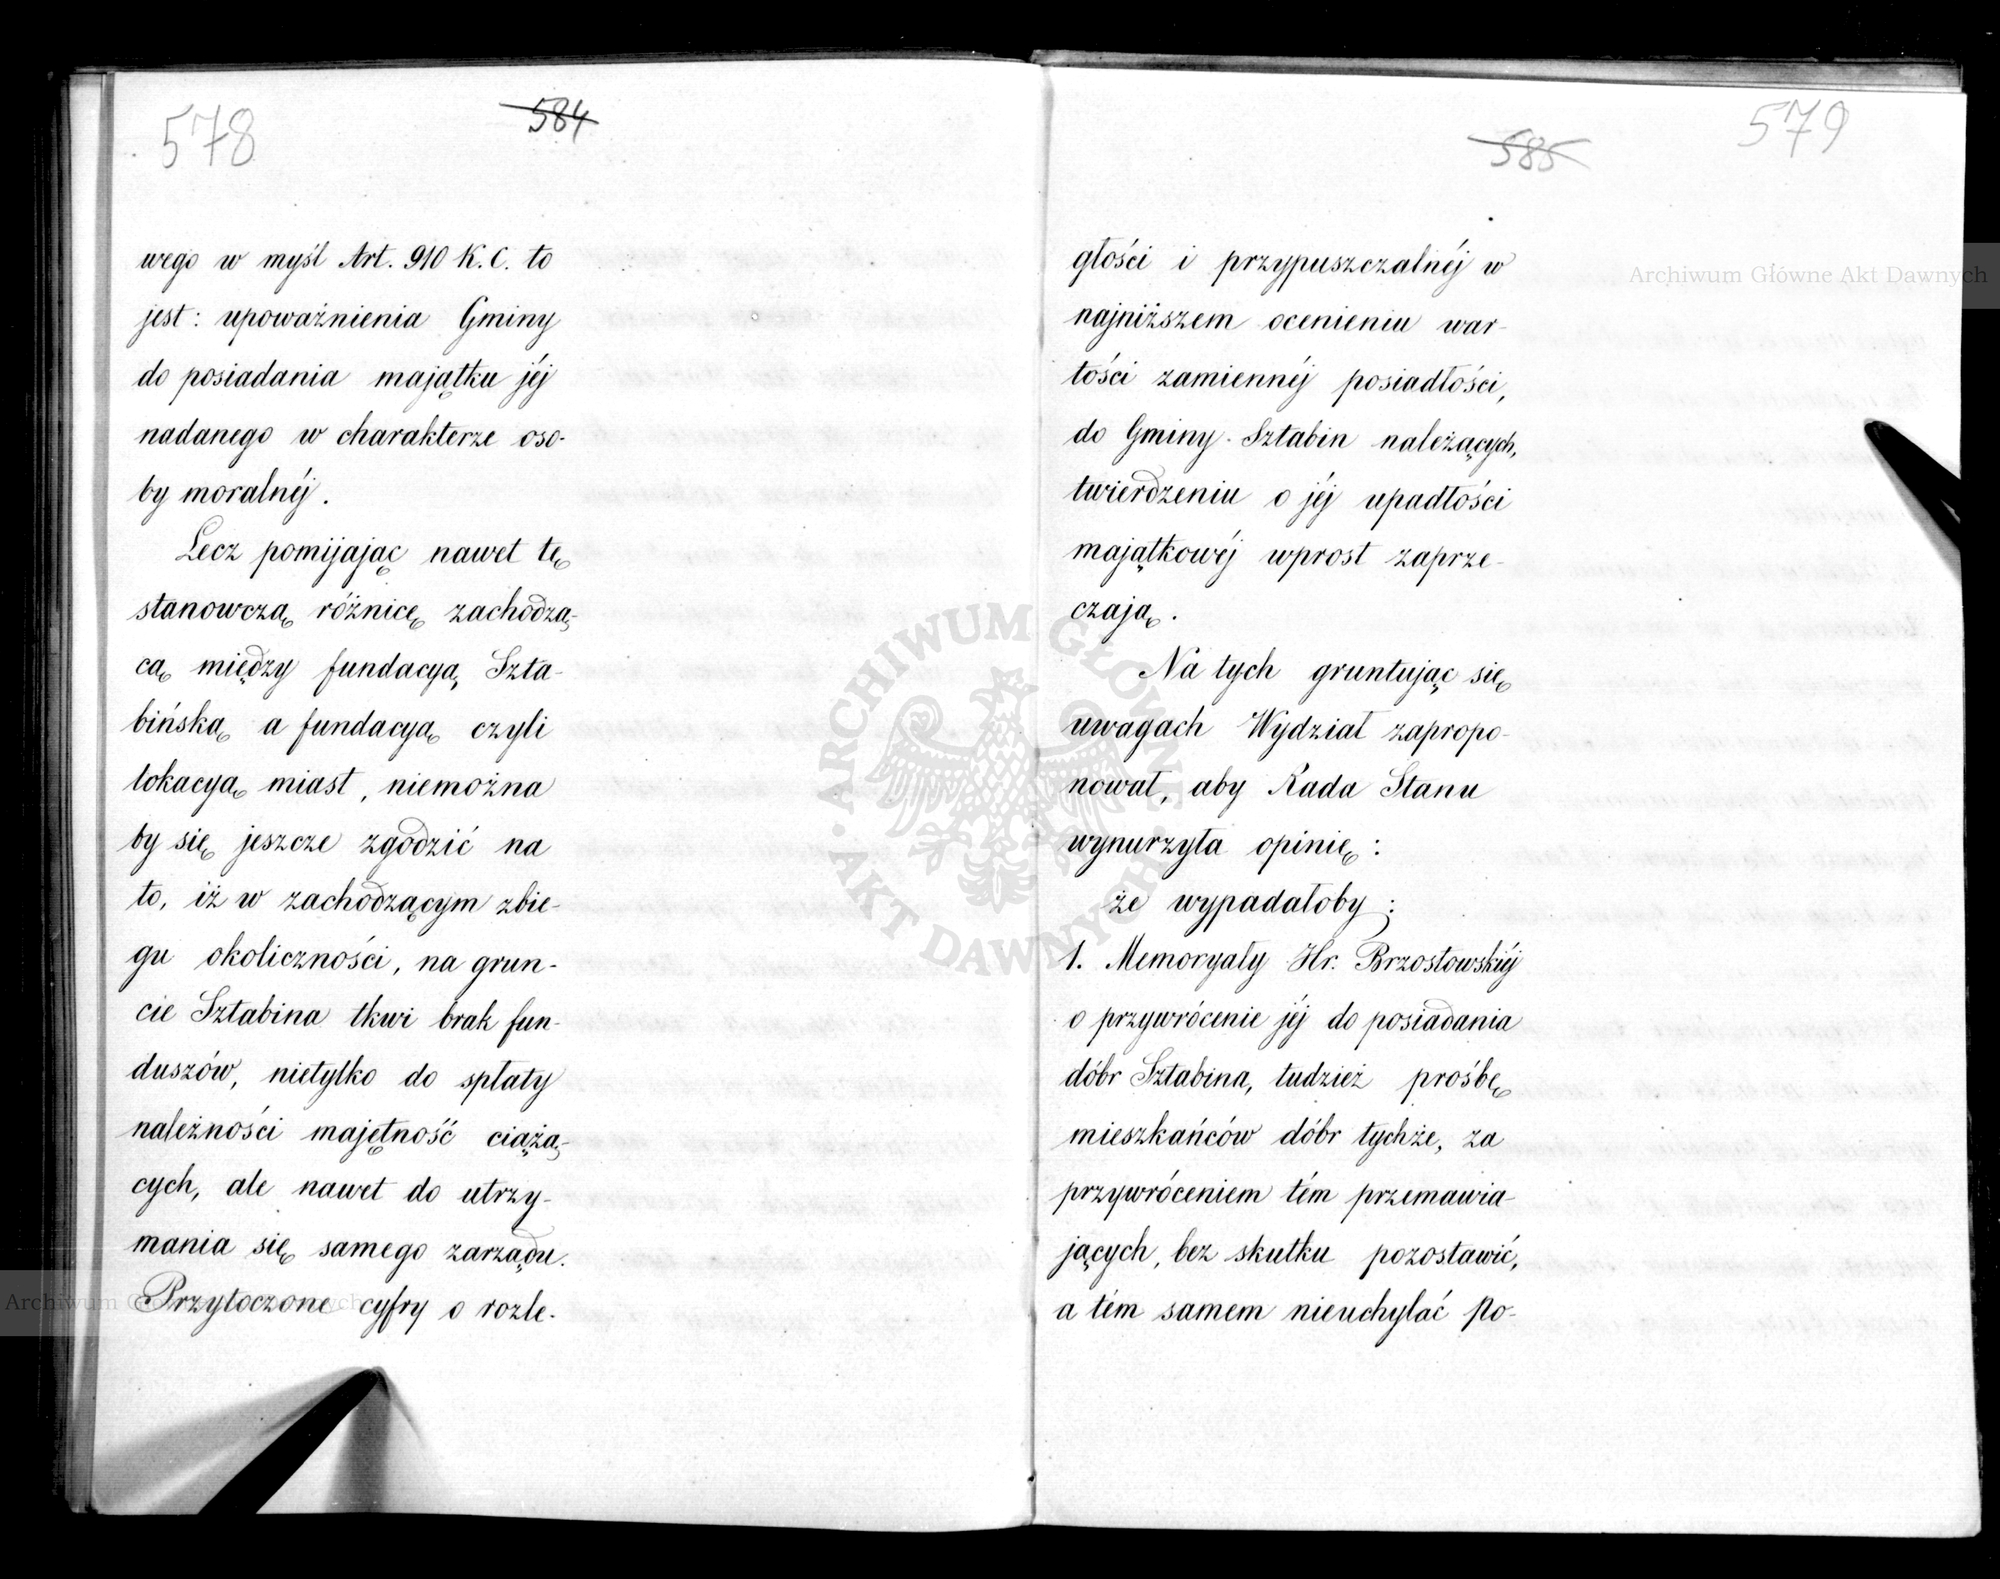 578
584
wego w myśl Art. 910 K. C. to
jest: upoważnienia Gminy
do posiadania majątku jéj
nadanego w charakterze oso-
by moralnéj.
Lecz pomijając nawet tę
stanowczą różnicę zachodzą-
cą między fundacyą Szta-
bińską a fundacyą czyli
lokacyą miast, niemożna
by się jeszcze zgodzić na
to, iż w zachodzącym zbie-
gu okoliczności, na grun-
cie Sztabina tkwi brak fun-
duszów, nietylko do spłaty
należności majętność ciążą-
cych, ale nawet do utrzy-
mania się samego zarządu.
Przytoczone cyfry o rozle-
579
585
głości i przypuszczalnéj w
najniższem ocenieniu war-
tości zamiennéj posiadłości,
do Gminy Sztabin należących,
twierdzeniu o jéj upadłości
majątkowéj wprost zaprze-
czają.
Na tych gruntując się
uwagach Wydział zapropo-
nował, aby Rada Stanu
wynurzyła opinię:
że wypadałoby:
1. Memoryały Hr. Brzostowskiéj
o przywrócenie jéj do posiadania
dóbr Sztabina, tudzież prośbę
mieszkańców dóbr tychże, za
przywróceniem tém przemawia-
jących, bez skutku pozostawić,
a tém samem nieuchylać po-
Archiwum Główne Akt Dawnych
ARCHIWUM GŁÓWNE AKT DAWNYCH
Archiwum Główne Akt Dawnych